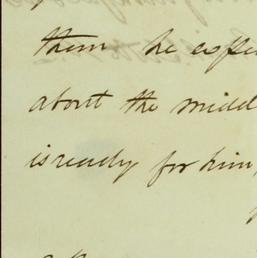 them he expe
about the midd
is ready for him,